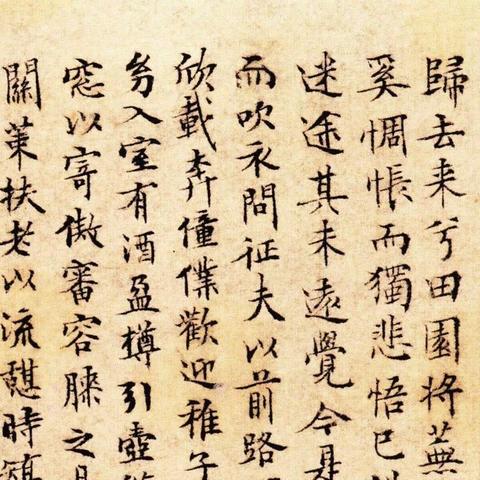 歸去来兮田園将蕪
奚惆悵而獨悲悟已
迷途其未遠覺今是
而吹衣問征夫以前路
欣載奔僮僕歡迎稚子
幼入室有酒盈樽引壺
窓以寄傲審容膝之
關策扶老以流憩時矯